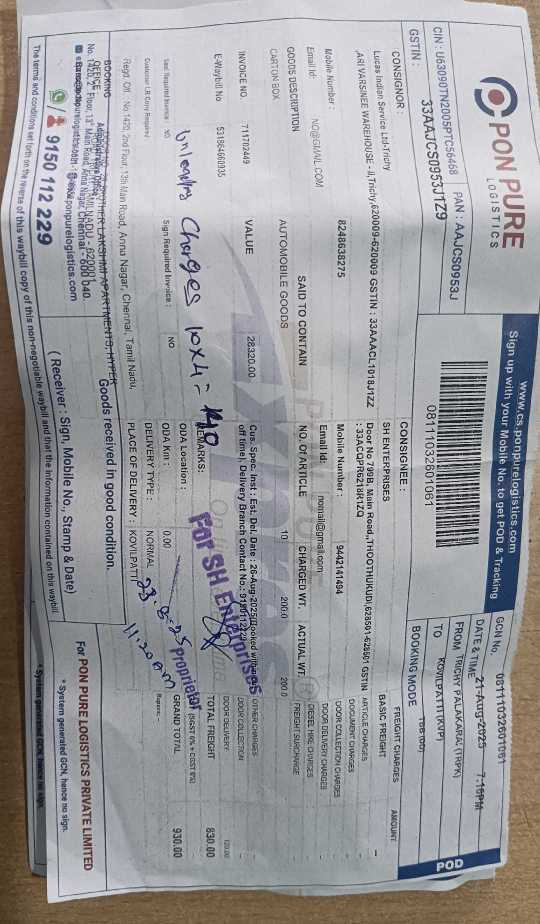 PON PURE
LOGISTICS
www.cs.ponpurelogistics.com
Sign up with your Mobile No. to get POD & Tracking
POD
CIN : U63090TN2005PTC56468 PAN : AAJCS0953J
GSTIN : 33AAJCS0953J1Z9
08111032601061
GCN No. 08111032601061
DATE & TIME 21-Aug-2025 7:15PM
FROM TRICHY PALAKARAI (TRPK)
TO KOVILPATTI (KVP)
BOOKING MODE
CONSIGNOR :
Lucas Indian Service Ltd-Trichy
,ARIVARSINEE WAREHOUSE - II,Trichy,620009-620009 GSTIN : 33AAACL1018J1ZZ
Mobile Number : 8248638275
Email Id: NO@GMAIL.COM
CONSIGNEE :
SH ENTERPRISES
Door No 799B, Main Road,,THOOTHUKUDI,628501-628501 GSTIN
: 33ACQPR6218R1ZQ
Mobile Number : 9442141464
Email Id: nomail@gmail.com
FREIGHT CHARGES AMOUNT
BASIC FREIGHT -
ARTICLE CHARGES
DOCUMENT CHARGES
DOOR COLLECTION CHARGES
DOOR DELIVERY CHARGES
DIESEL HIKE CHARGES
FREIGHT SURCHARGE
OTHER CHARGES
DOOR COLLECTION
DOOR DELIVERY
TOTAL FREIGHT 830.00
(SGST 0% + CGST 0%)
GRAND TOTAL 930.00
GOODS DESCRIPTION SAID TO CONTAIN NO. OF ARTICLE CHARGED WT. ACTUAL WT.
CARTON BOX AUTOMOBILE GOODS 10 200.0 200.0
INVOICE NO. 711702449 VALUE 28320.00
Cus. Spec. Inst : Est. Del. Date : 26-Aug-2025
off time) Delivery Branch Contact No.:
E-Waybill No 531864660935
Unloading Charges 10x4 = 40
REMARKS:
For SH Enterprises
Proprietor
Sign Required Invoice : NO
ODA Location :
ODA Km : 0.00
DELIVERY TYPE : NORMAL
PLACE OF DELIVERY : KOVILPATTI
23-8-25
11.20 AM
Customer LR Copy Required
Regd. Off. : No.1420, 2nd Floor, 13th Main Road, Anna Nagar, Chennai, Tamil Nadu,
BOOKING
OFFICE
Goods received in good condition.
9150 112 229
( Receiver : Sign, Mobile No., Stamp & Date)
For PON PURE LOGISTICS PRIVATE LIMITED
* System generated GCN, hence no sign.
The terms and conditions set forth on the reverse of this waybill copy of this non-negotiable waybill and that the information contained on this waybill
* System generated GCN, hence no sign.